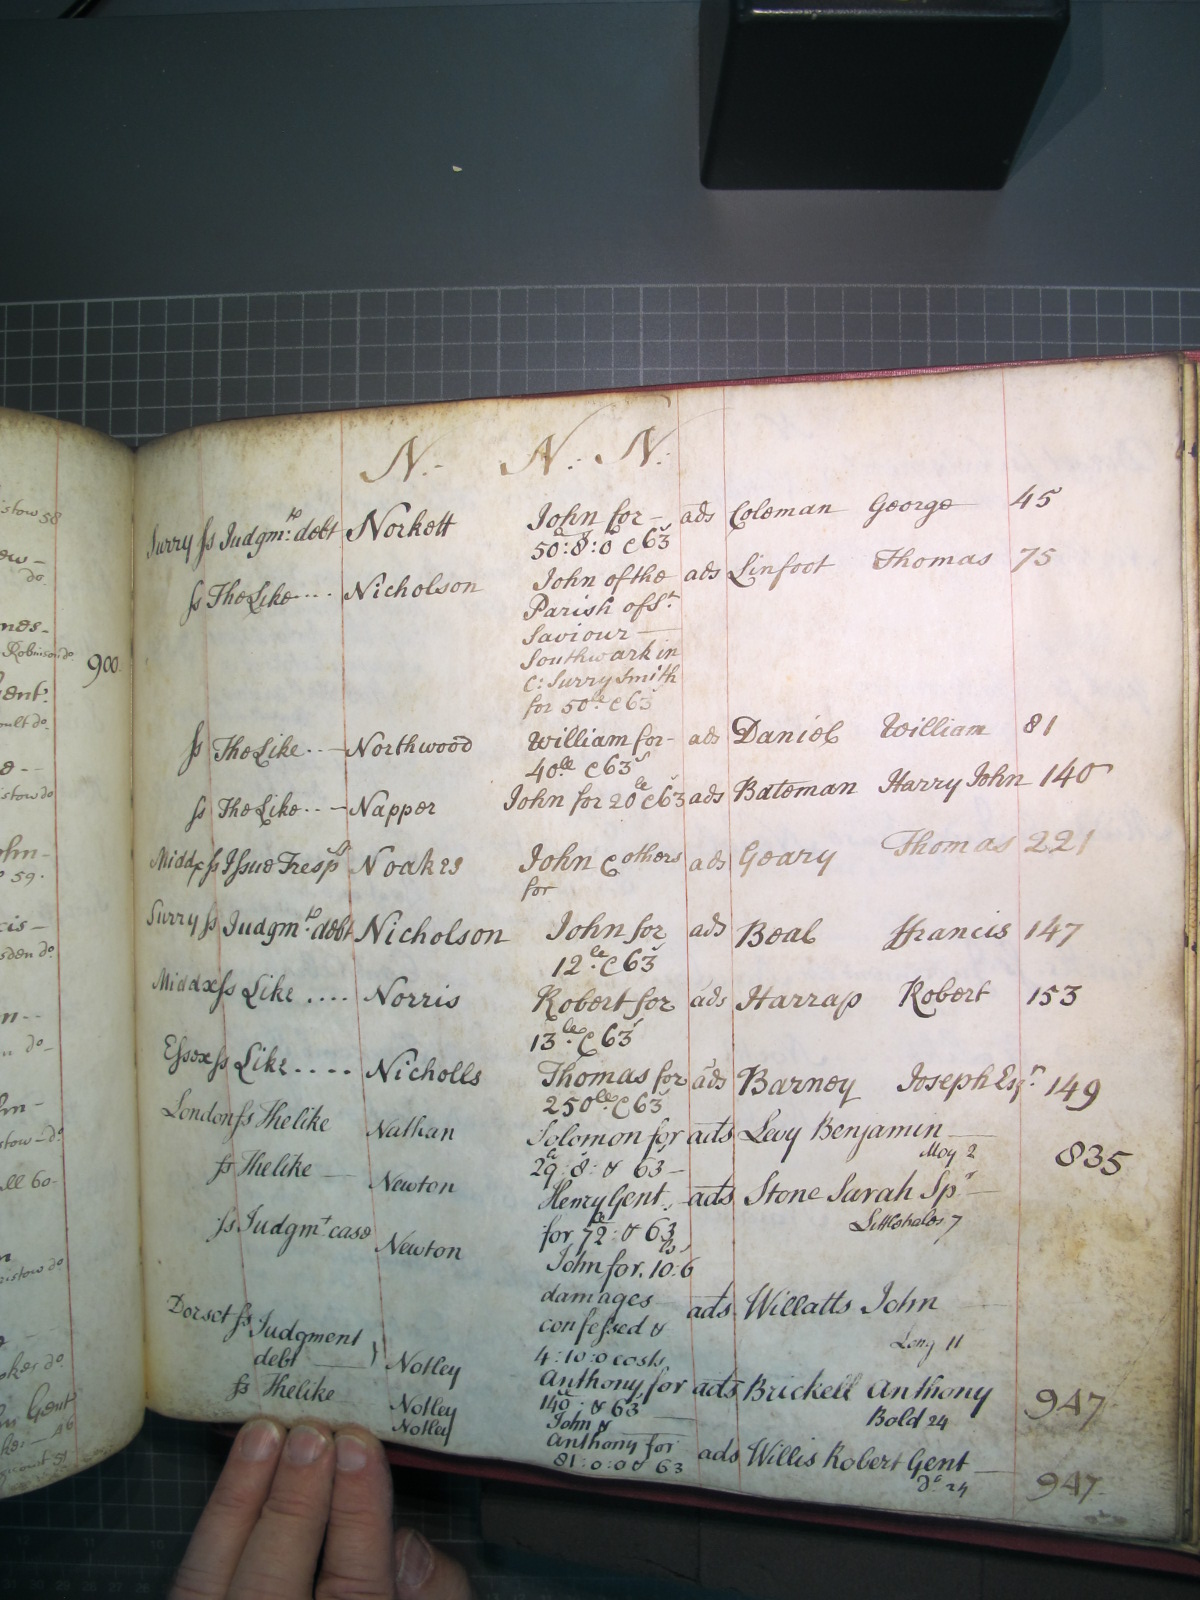 N:- N:- N:
Surry ss Judgmt: sp debt Norkett John for - ads Coleman George 45
50:8:0 & 63s
ss The Like .... Nicholson John of the ads Linfoot Thomas 75
Parish of St
Saviour
Southwark in
C: Surry Smith
for 50le & 63
ss The Like .. - Northwood William for - ads Daniel William 81
40le & 63s
ss The Like .. - Napper John for 20le & 63s ads Bateman Harry John 140
Middx ss Issue Tresp Noakes John & others ads Geary Thomas 221
for
Surry ss Judgmt: sp debt Nicholson John for ads Beal ffrancis 147
12le & 63s
Middx ss Like .... Norris Robert for ads Harrap Robert 153
13le & 63s
Essex ss Like .... Nicholls Thomas for ads Barney Joseph Esqr. 149
250le & 63s
London ss The like Nathan Solomon for ads Levy Benjamin
29le: 8: & 63 - Moy 2 835
ss The like Newton Henry Gent. ads Stone Sarah Spr
for 72le: & 63 Littlehales 7
ss Judgmt case Newton John for. 10:6
damages ads Willatts John
confessed & Long 11
4:10:0 costs
Dorset ss Judgment
debt Notley Anthony for ads Brickell Anthony 947
140le: & 63 Bold 24
ss The like Notley John &
Notley Anthony for ads Willis Robert Gent
81:0:0 & 63 do 24 947
900
istow 58
ew -
do
nes -
Robinson do
ent.
oult do
istow do
ohn -
59.
cis -
sden do
do
istow - do
ll 60 -
ristow do
kes do
Gent
46
51